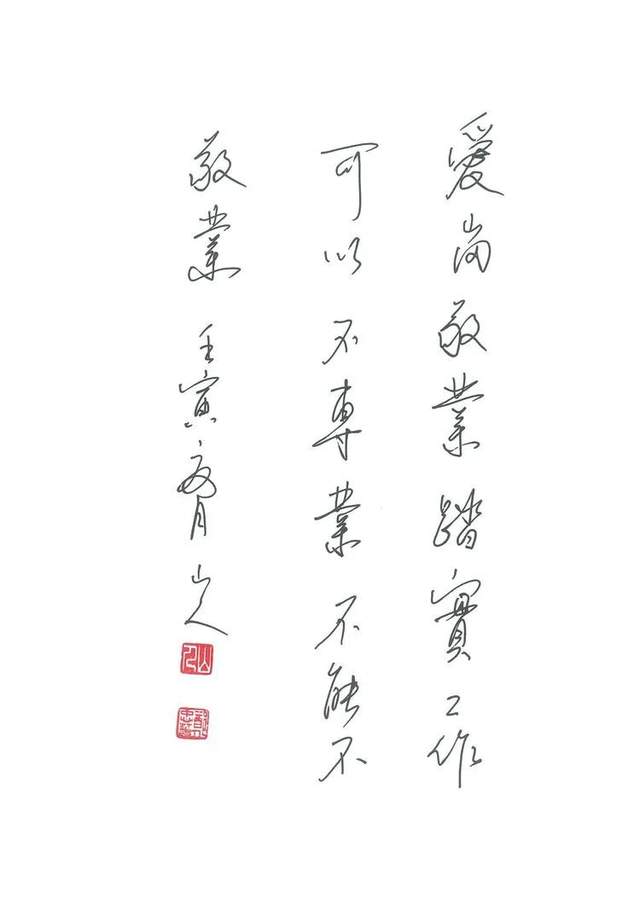 愛崗敬業踏實工作
可以不專業不能不
敬業 壬寅夏月 山人
山人